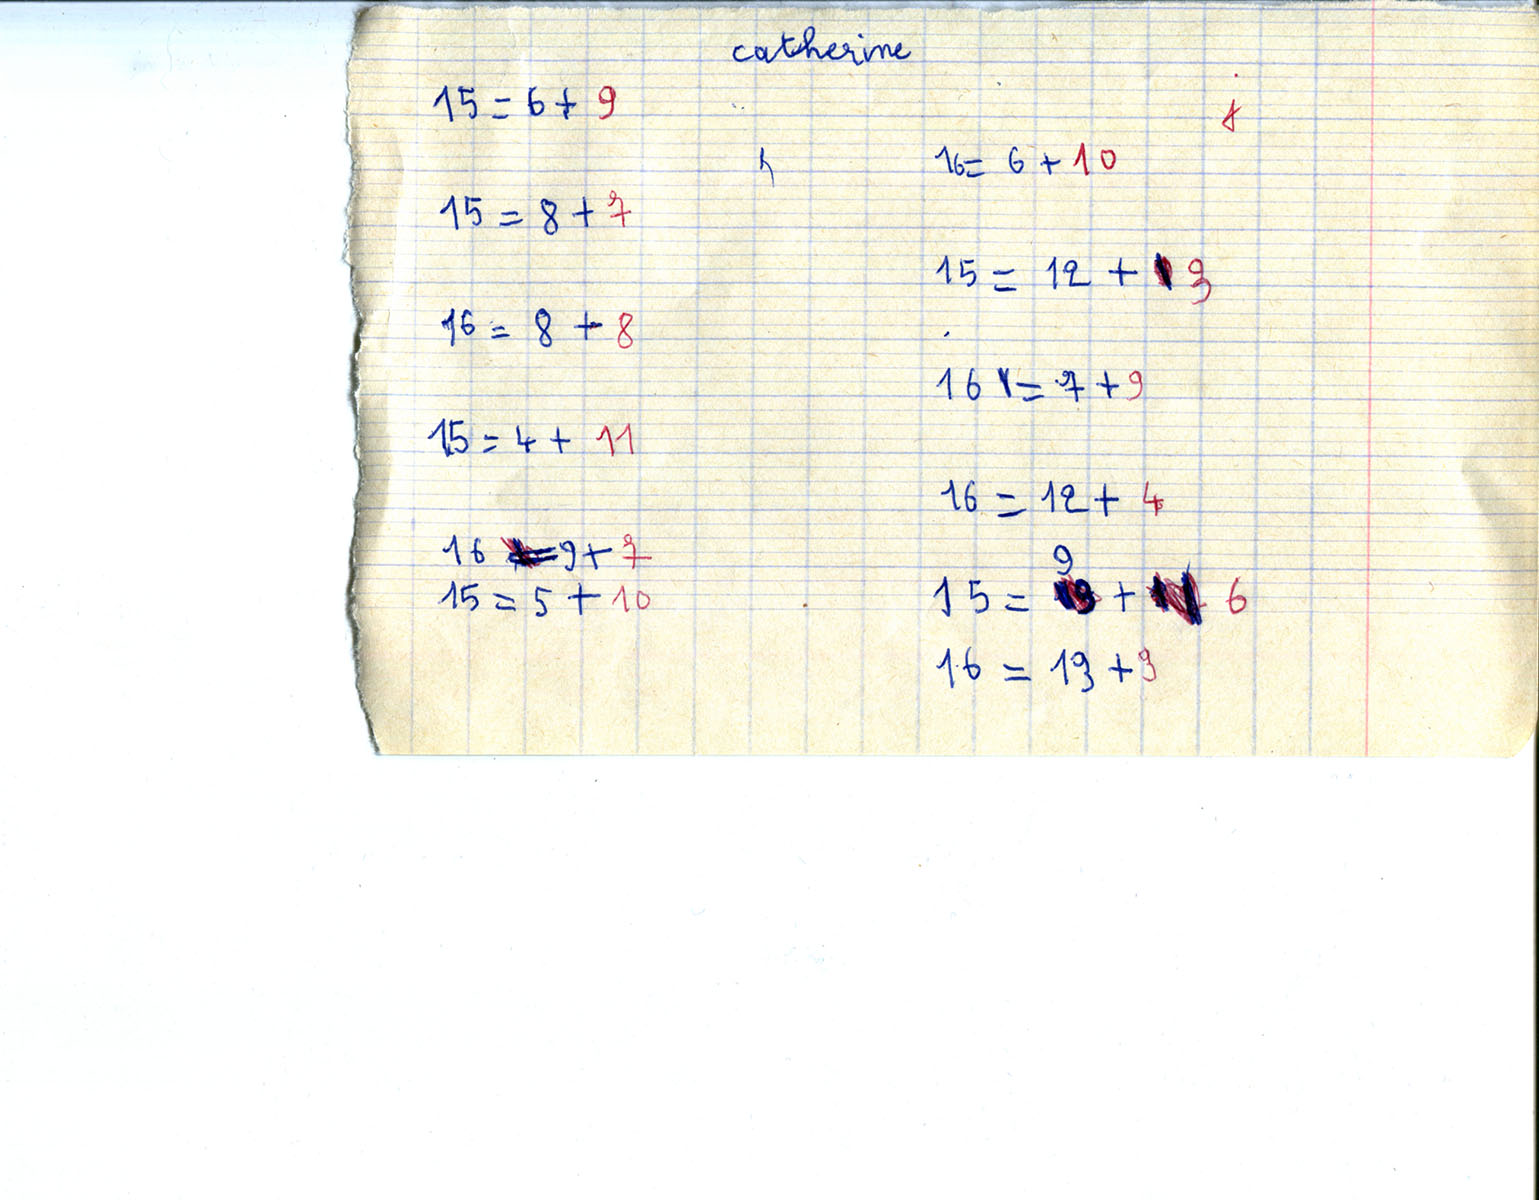 catherine
15 = 6 + 9
15 = 8 + 7
16 = 8 + 8
15 = 4 + 11
16 = 9 + 7
15 = 5 + 10
16 = 6 + 10
15 = 12 + 3
16 = 7 + 9
16 = 12 + 4
15 = 9 + 6
16 = 13 + 3